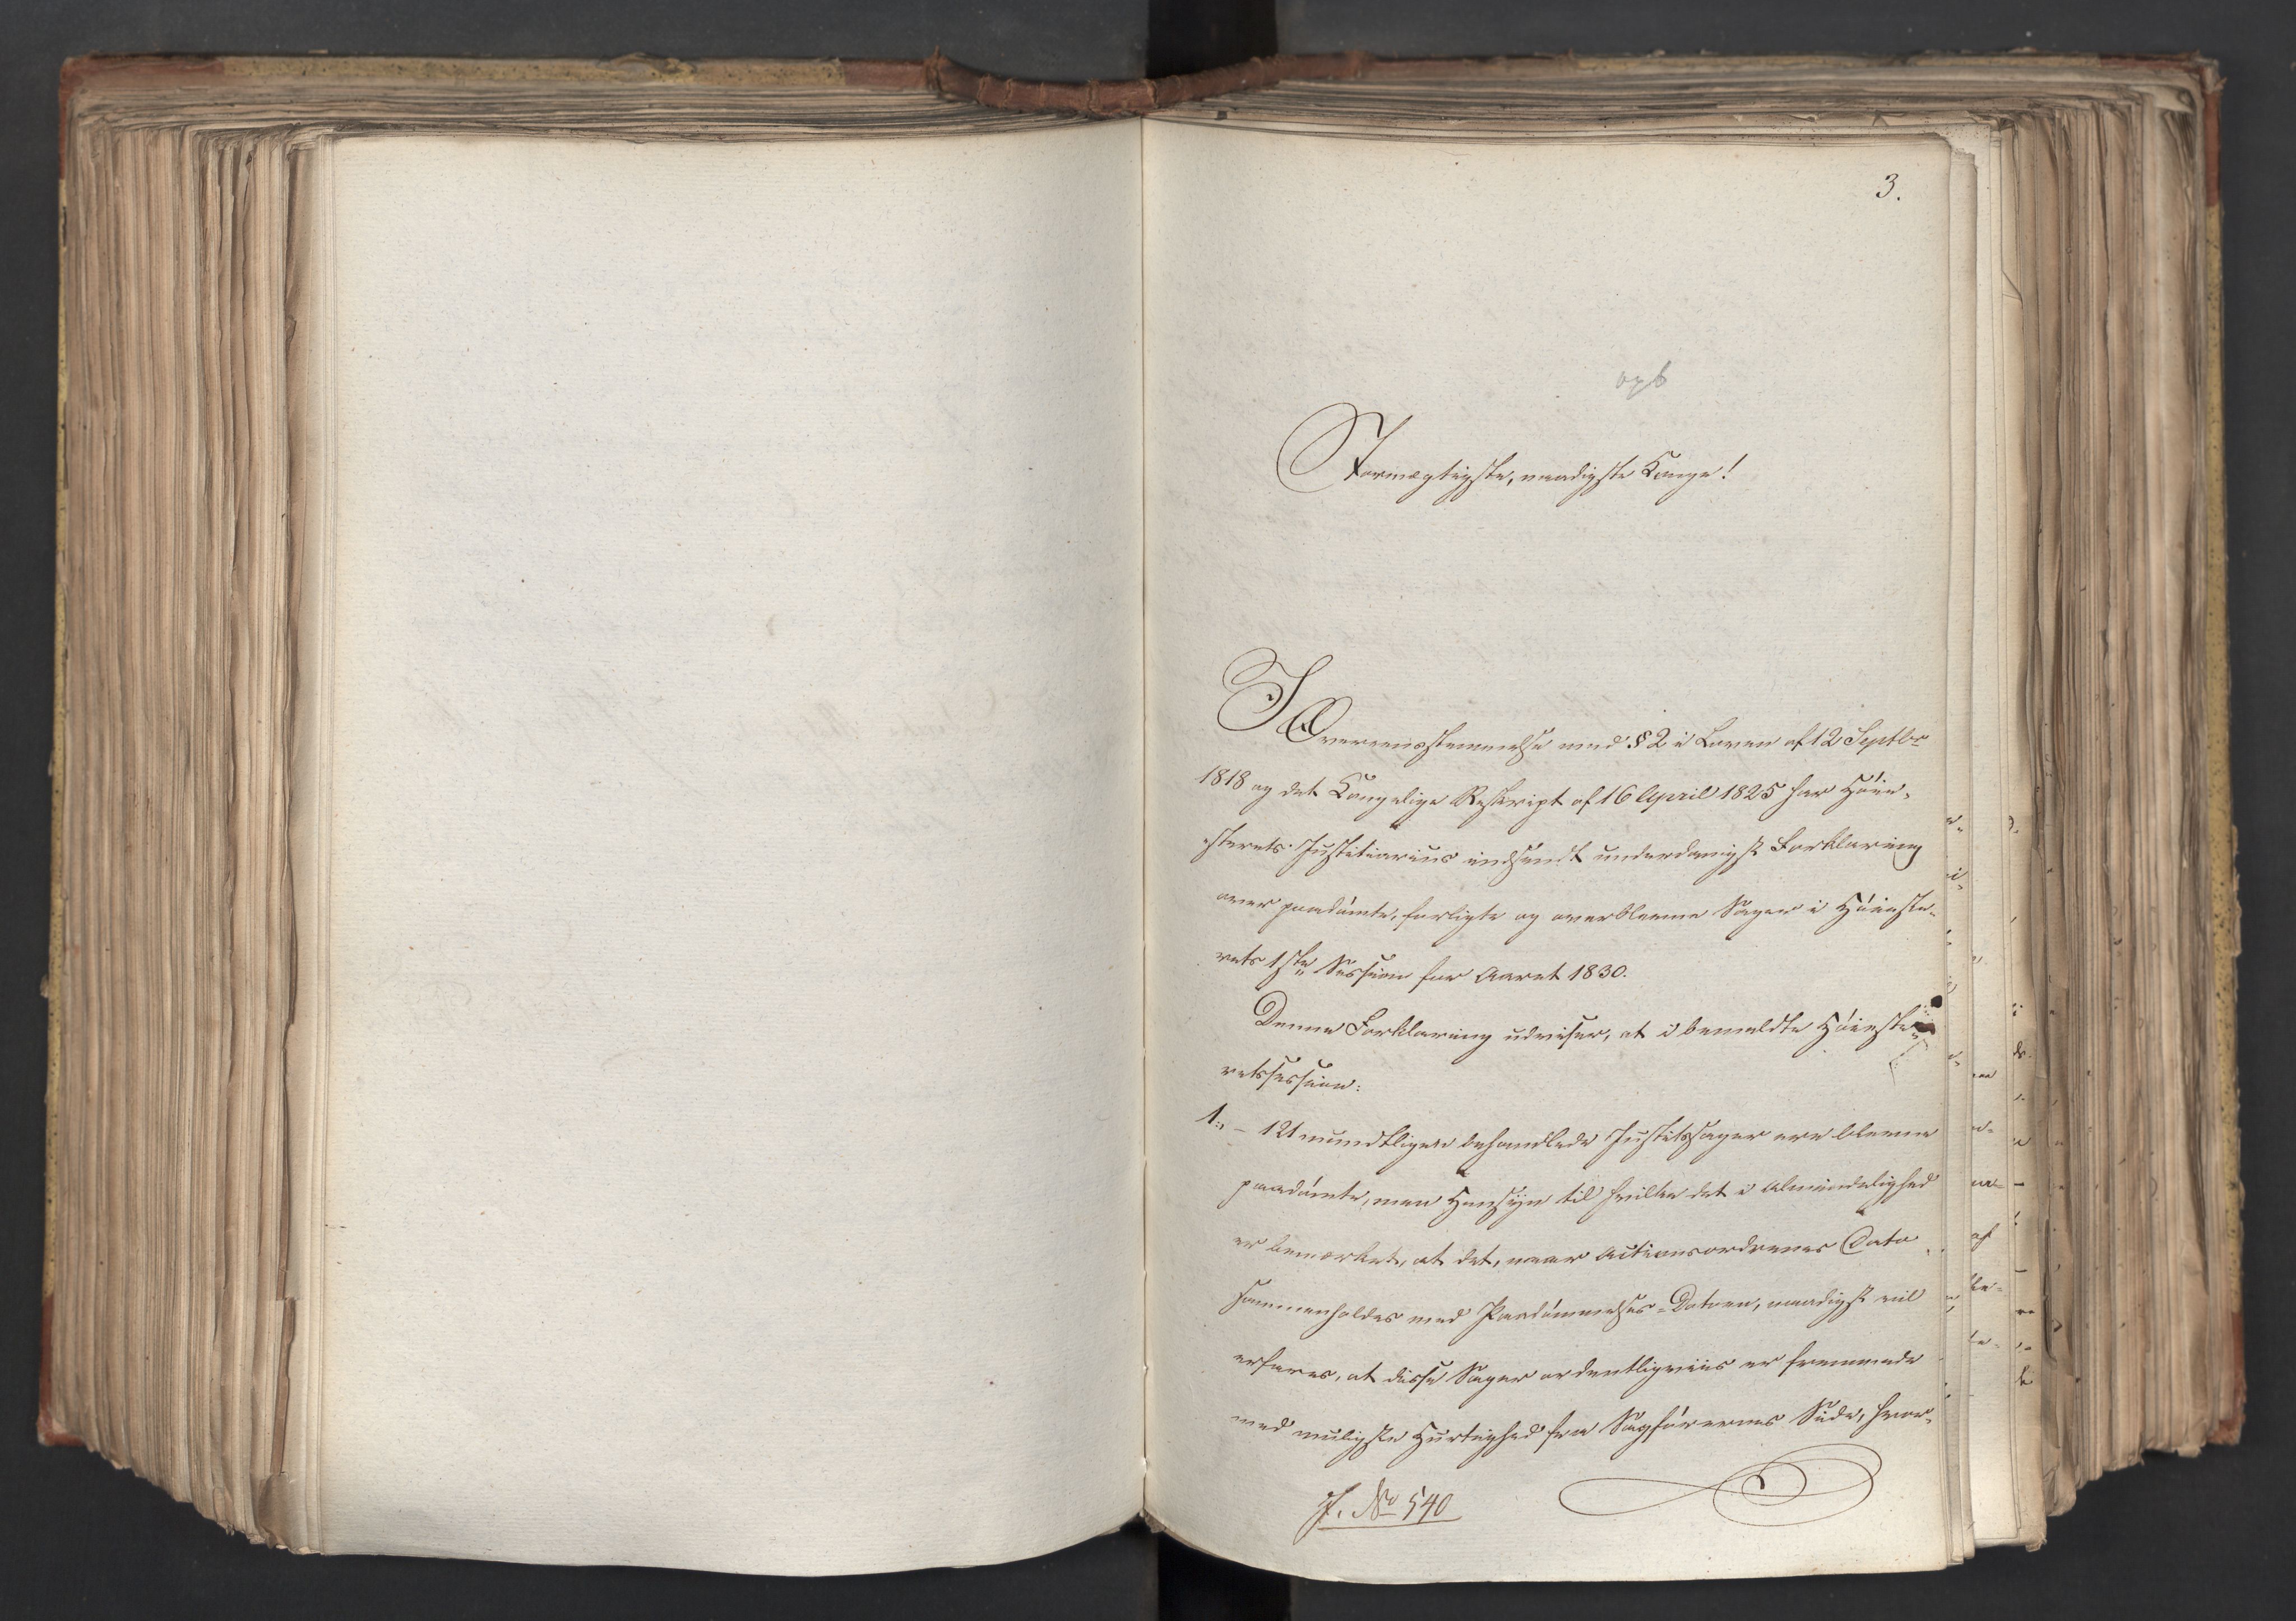 3.
Stormægtigste, naadigste Konge!
I Overeensstemmelse med § 2 i Loven af 12 Septbr
1818 og det Kongelige Reskript af 16 April 1825 har Höie-
sterets Justitiarius indsendt underdanigst Forklaring
over paadömte, forligte og overblevne Sager i Höieste-
rets 1ste Session for Aaret 1830.
Denne Forklaring udviser, at i bemeldte Höieste-
retssession:
1., – 121 mundtligen behandlede Justitssager ere blevne
paadömte, men Hensyn til hvilke det i Almindelighed
er bemærket, at det, naar Actionsordrenes Dato
sammenholdes med Paadömmelses-Datoen, naadigst vil
erfares, at disse Sager ordentligviis er fremmede
med muligste Hurtighed fra Sagförernes Side, hvor-
J. No 540